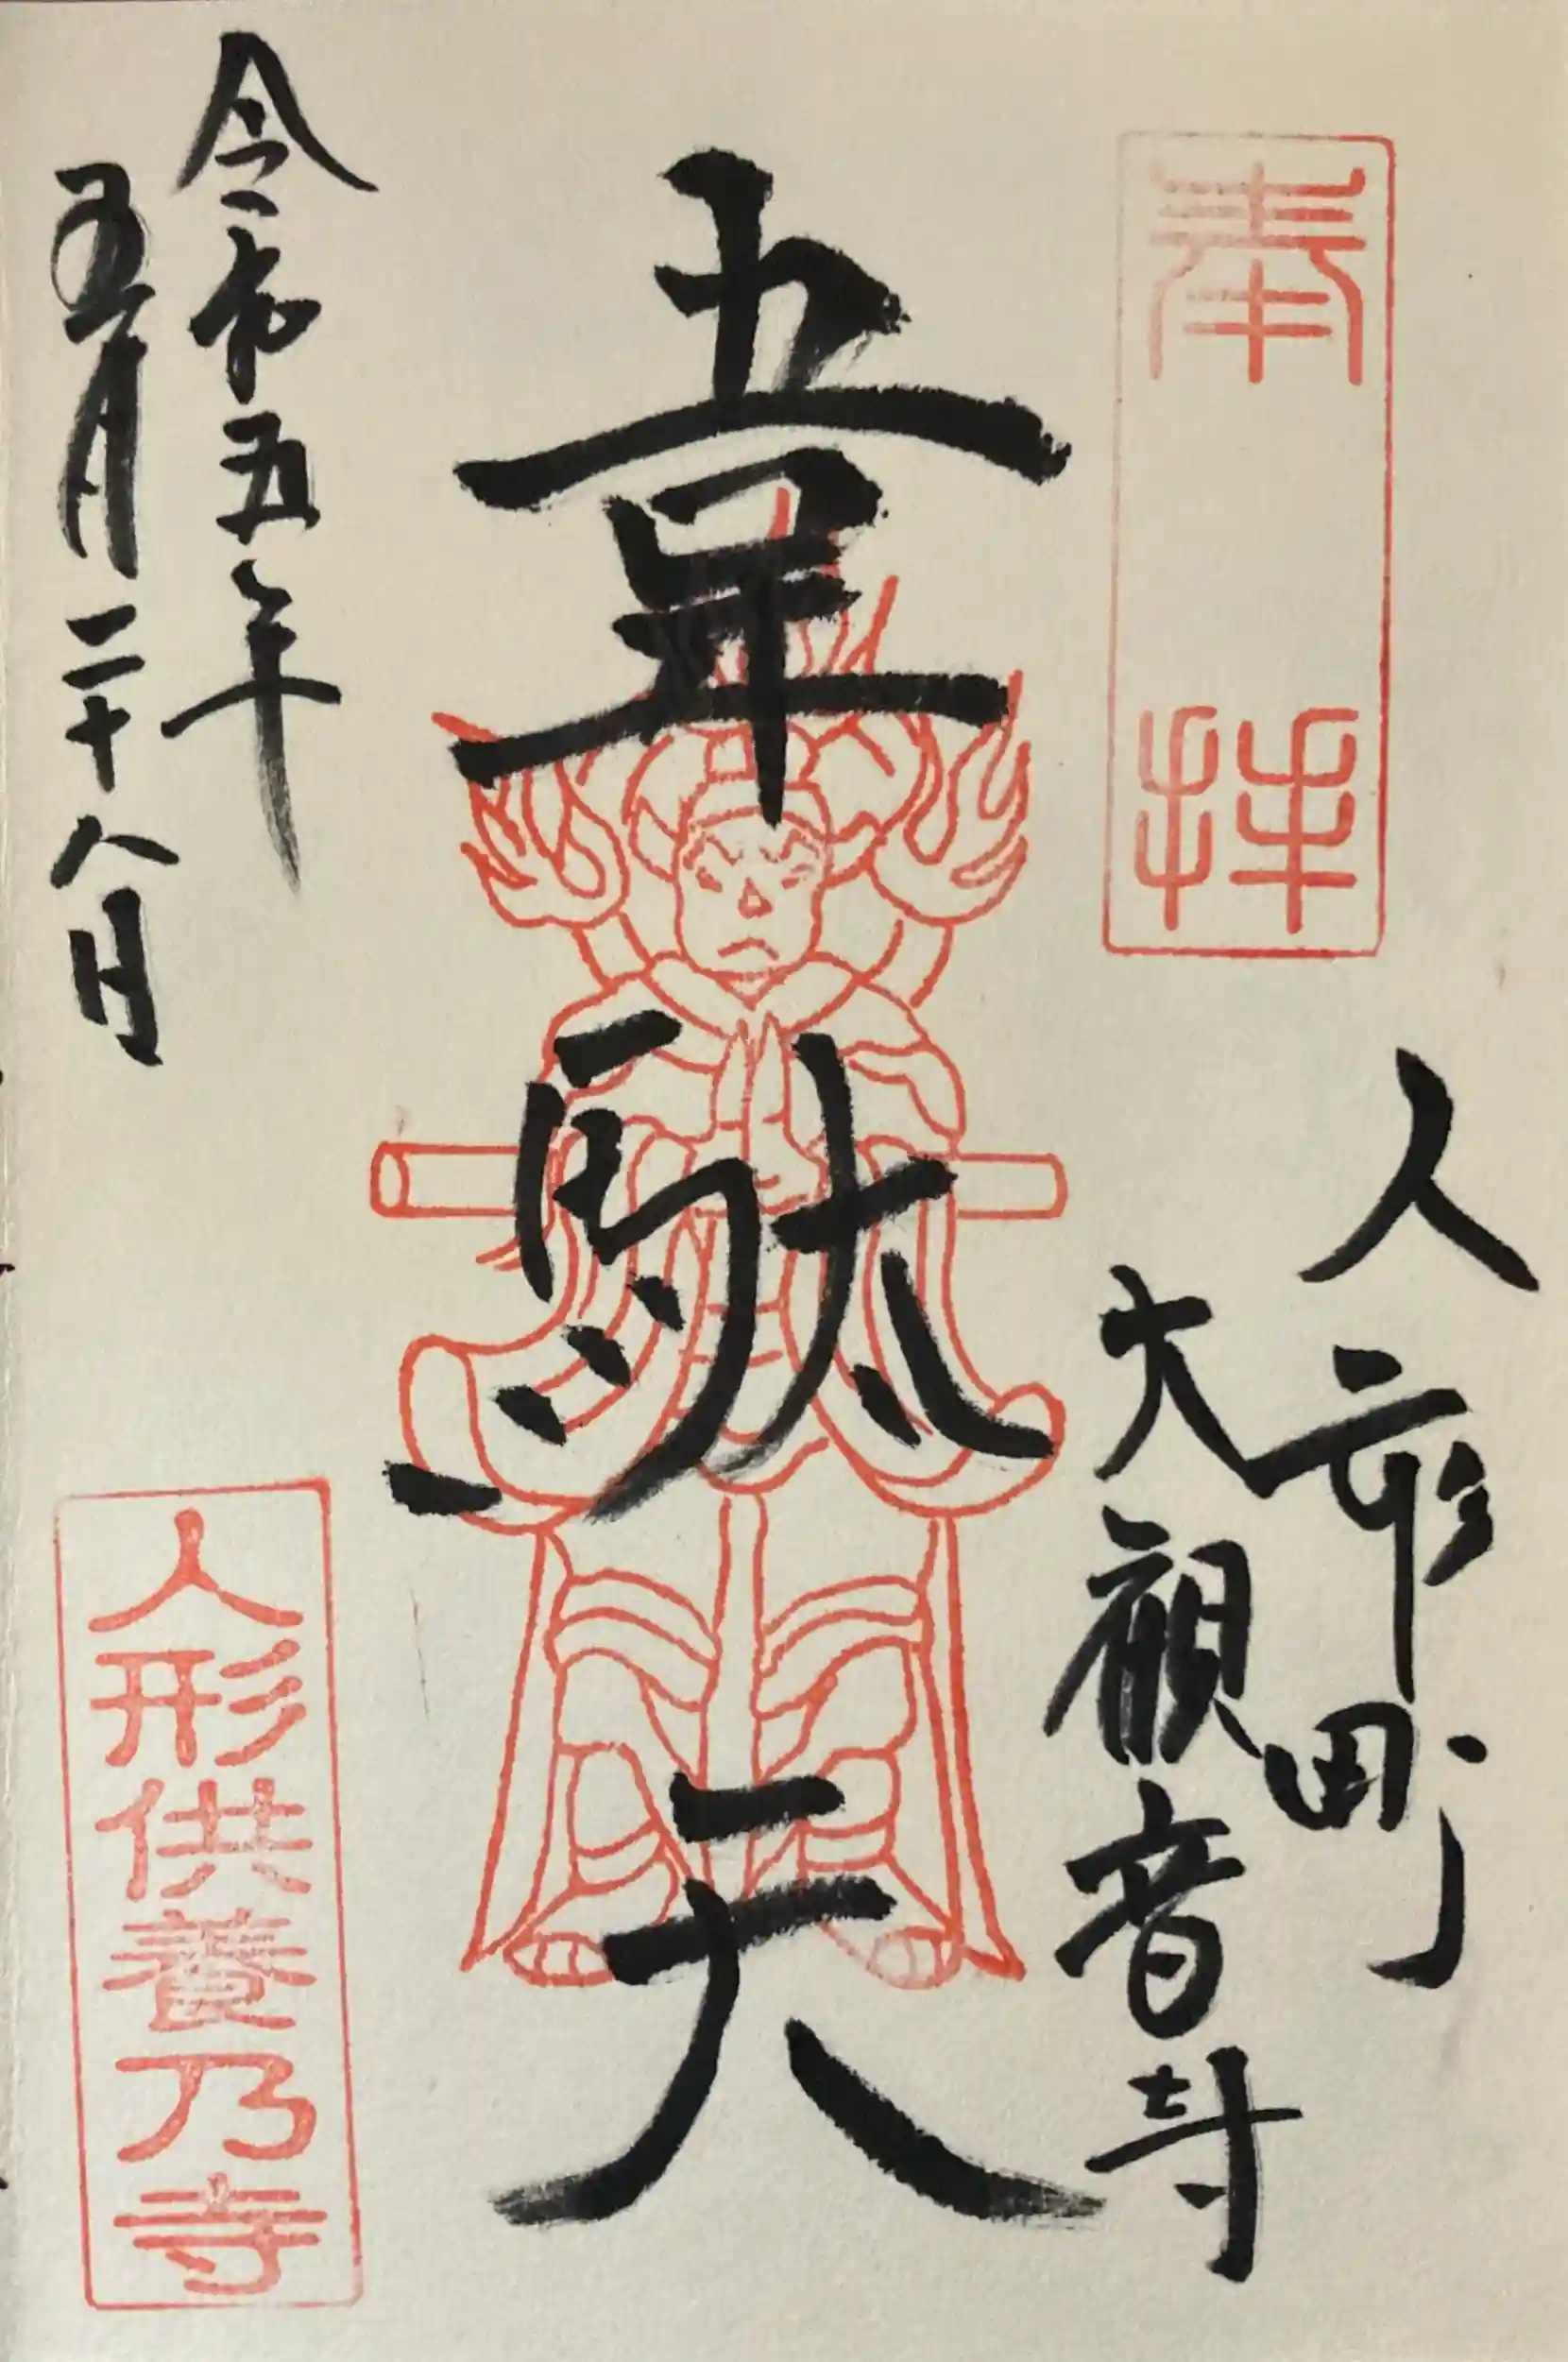 奉拝
人形町
大観音寺
韋駄天
令和五年
五月二十八日
人形供養乃寺